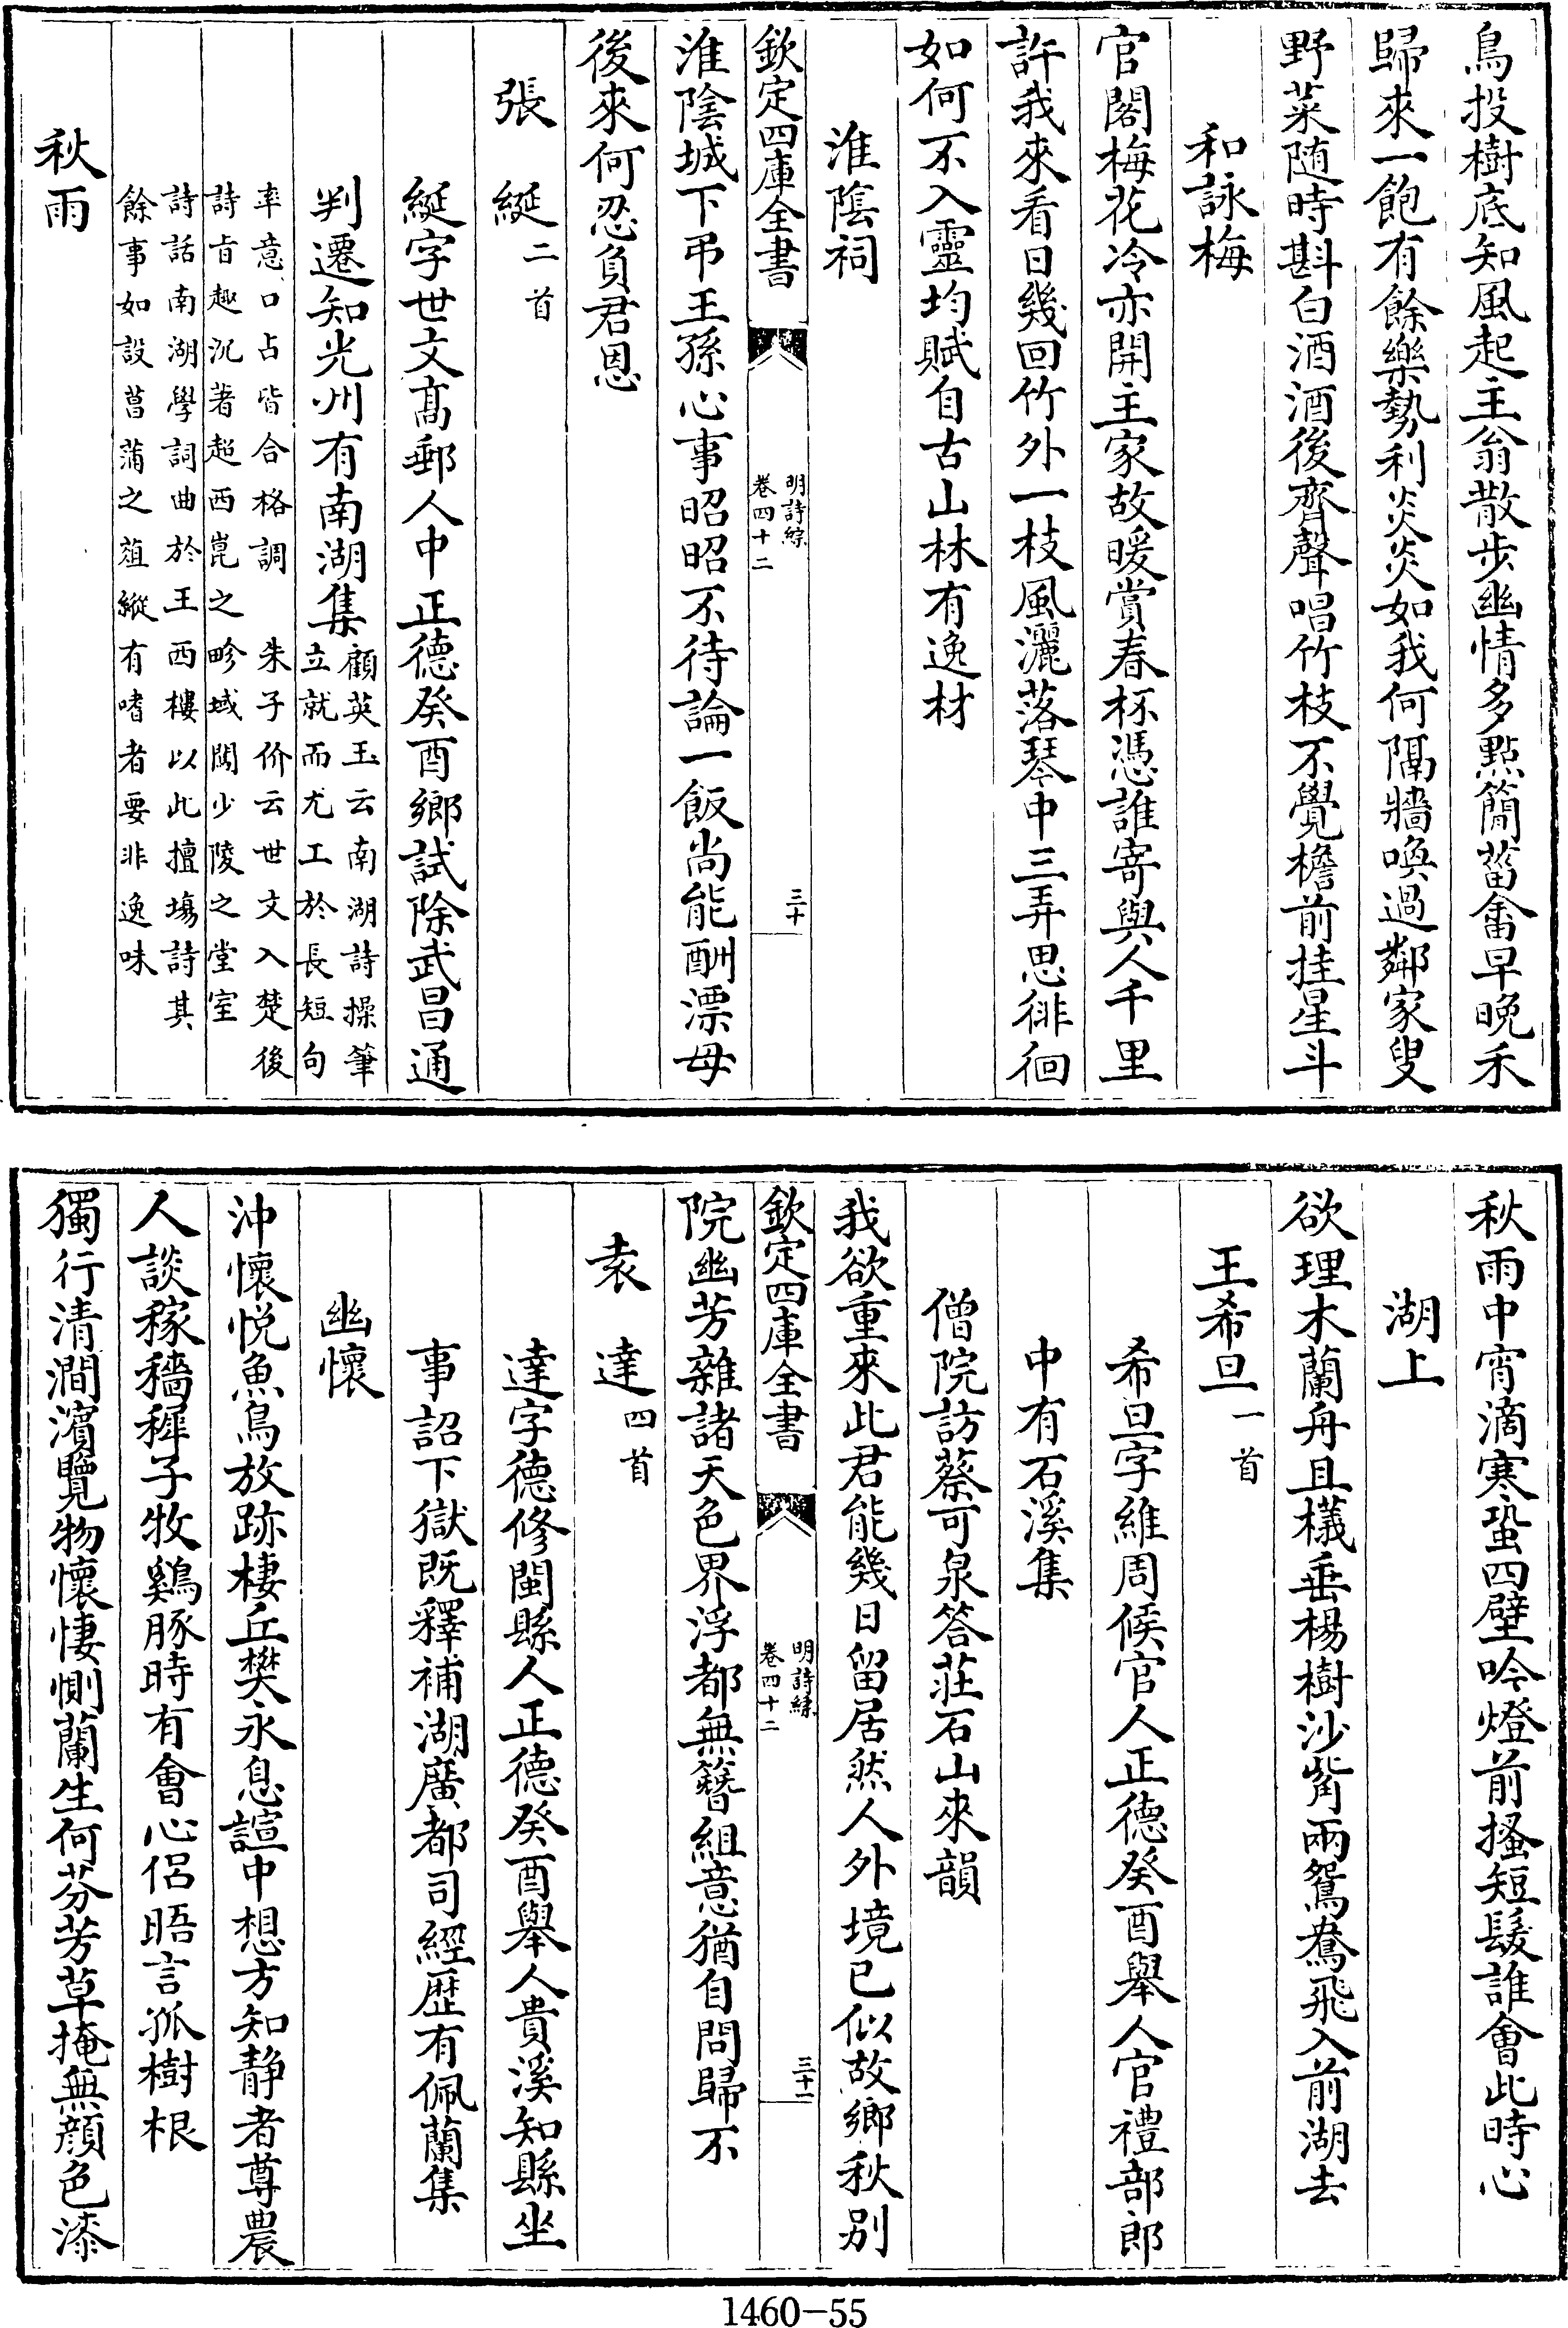 鳥投樹底知風起主翁散步幽情多點簡菑畬早晚禾
歸來一飽有餘樂勢利炎炎如我何隔牆喚過鄰家叟
野菜随時斟白酒酒後齊聲唱竹枝不覺檐前挂星斗
和詠梅
官閣梅花冷亦開主家故暖賞春杯憑誰寄與人千里
許我來看日幾回竹外一枝風灑落琴中三弄思徘徊
如何不入靈均賦自古山林有逸材
淮陰祠
欽定四庫全書
明詩綜
卷四十二
三十
淮陰城下弔王孫心事昭昭不待論一飯尚能酬漂母
後來何忍負君恩
張綖二首
綖字世文髙郵人中正德癸酉鄉試除武昌通
判遷知光州有南湖集
顧英玉云南湖詩操筆
立就而尤工於長短句
率意口占皆合格調　朱子价云世文入楚後
詩旨趣沉著超西崑之畛域闖少陵之堂室
詩話南湖學詞曲於王西樓以此擅塲詩其
餘事如設菖蒲之葅縱有嗜者要非逸味
秋雨
秋雨中宵滴寒蛩四壁吟燈前搔短髮誰會此時心
湖上
欲理木蘭舟且檥垂楊樹沙觜兩鴛鴦飛入前湖去
王希旦一首
希旦字維周候官人正德癸酉舉人官禮部郎
中有石溪集
僧院訪蔡可泉答莊石山來韻
我欲重來此君能幾日留居然人外境已似故鄉秋别
欽定四庫全書
明詩綜
卷四十二
三十一
院幽芳雜諸天色界浮都無簪組意猶自問歸不
袁達四首
達字德修閩縣人正德癸酉舉人貴溪知縣坐
事詔下獄既釋補湖廣都司經歴有佩蘭集
幽懷
沖懷悦魚鳥放跡棲丘樊永息諠中想方知静者尊農
人談稼穡穉子牧鷄豚時有會心侶晤言孤樹根
獨行清澗濱覽物懷悽惻蘭生何芬芳草掩無顔色漆
1460-55